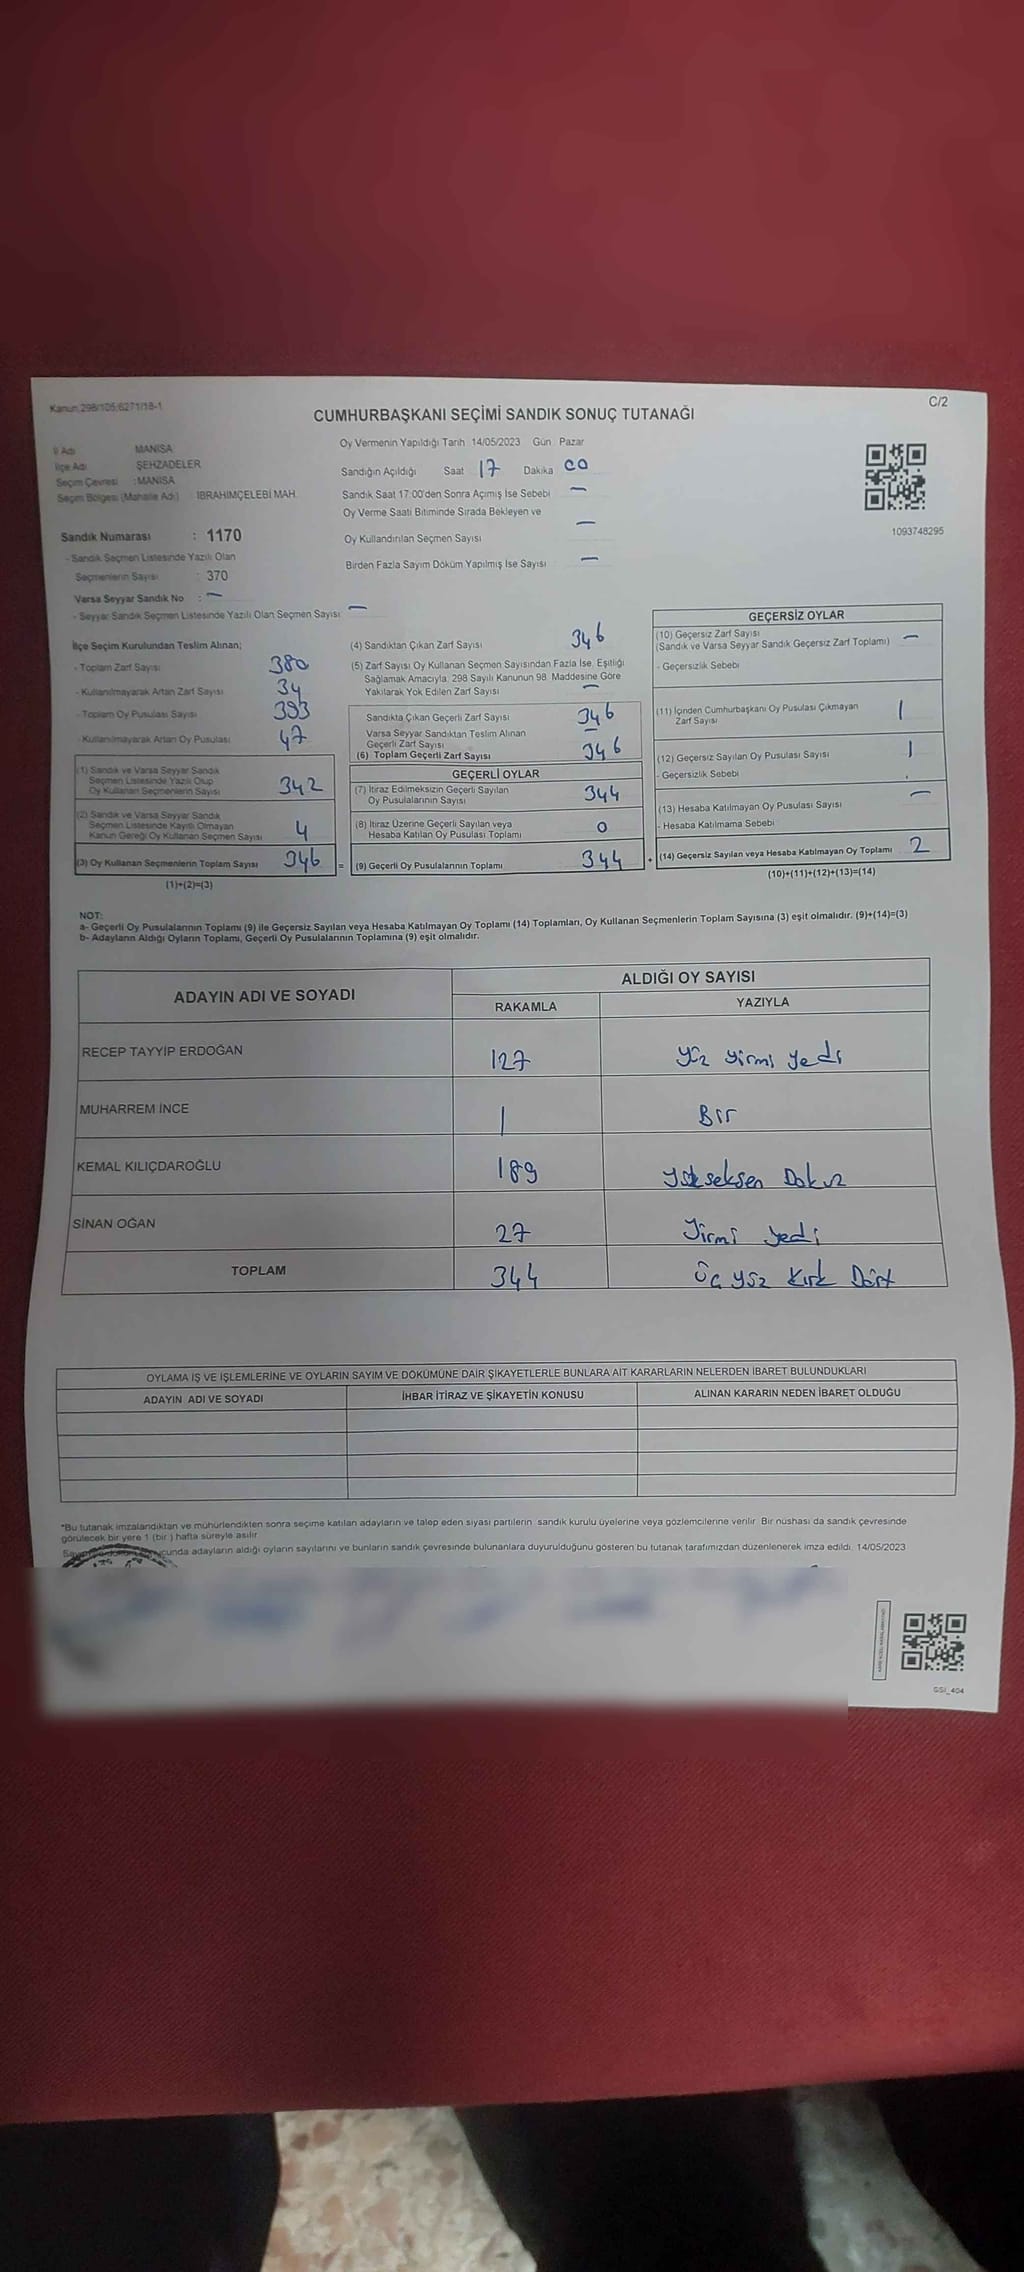 Kanun:298/105;6271/18-1
C/2
CUMHURBAŞKANI SEÇİMİ SANDIK SONUÇ TUTANAĞI
İl Adı MANİSA
İlçe Adı ŞEHZADELER
Seçim Çevresi :MANİSA
Seçim Bölgesi (Mahalle Adı) İBRAHİMÇELEBİ MAH.
Sandık Numarası : 1170
- Sandık Seçmen Listesinde Yazılı Olan
Seçmenlerin Sayısı : 370
Varsa Seyyar Sandık No : —
- Seyyar Sandık Seçmen Listesinde Yazılı Olan Seçmen Sayısı —
Oy Vermenin Yapıldığı Tarih 14/05/2023 Gün : Pazar
Sandığın Açıldığı Saat 17 Dakika 00
Sandık Saat 17:00'den Sonra Açımış İse Sebebi —
Oy Verme Saati Bitiminde Sırada Bekleyen ve
Oy Kullandırılan Seçmen Sayısı —
Birden Fazla Sayım Döküm Yapılmış İse Sayısı —
1093748295
İlçe Seçim Kurulundan Teslim Alınan;
- Toplam Zarf Sayısı 380
- Kullanılmayarak Artan Zarf Sayısı 34
- Toplam Oy Pusulası Sayısı 393
- Kullanılmayarak Artan Oy Pusulası 47
(1) Sandık ve Varsa Seyyar Sandık
Seçmen Listesinde Yazılı Olup
Oy Kullanan Seçmenlerin Sayısı 342
(2) Sandık ve Varsa Seyyar Sandık
Seçmen Listesinde Kayıtlı Olmayan
Kanun Gereği Oy Kullanan Seçmen Sayısı 4
(3) Oy Kullanan Seçmenlerin Toplam Sayısı 346 =
(1)+(2)=(3)
(4) Sandıktan Çıkan Zarf Sayısı 346
(5) Zarf Sayısı Oy Kullanan Seçmen Sayısından Fazla İse, Eşitliği
Sağlamak Amacıyla, 298 Sayılı Kanunun 98. Maddesine Göre
Yakılarak Yok Edilen Zarf Sayısı —
Sandıkta Çıkan Geçerli Zarf Sayısı 346
Varsa Seyyar Sandıktan Teslim Alınan
Geçerli Zarf Sayısı —
(6) Toplam Geçerli Zarf Sayısı 346
GEÇERLİ OYLAR
(7) İtiraz Edilmeksizin Geçerli Sayılan
Oy Pusulalarının Sayısı 344
(8) İtiraz Üzerine Geçerli Sayılan veya
Hesaba Katılan Oy Pusulası Toplamı 0
(9) Geçerli Oy Pusulalarının Toplamı 344 +
GEÇERSİZ OYLAR
(10) Geçersiz Zarf Sayısı —
(Sandık ve Varsa Seyyar Sandık Geçersiz Zarf Toplamı)
- Geçersizlik Sebebi
(11) İçinden Cumhurbaşkanı Oy Pusulası Çıkmayan
Zarf Sayısı 1
(12) Geçersiz Sayılan Oy Pusulası Sayısı 1
- Geçersizlik Sebebi
(13) Hesaba Katılmayan Oy Pusulası Sayısı —
- Hesaba Katılmama Sebebi
(14) Geçersiz Sayılan veya Hesaba Katılmayan Oy Toplamı 2
(10)+(11)+(12)+(13)=(14)
NOT:
a- Geçerli Oy Pusulalarının Toplamı (9) ile Geçersiz Sayılan veya Hesaba Katılmayan Oy Toplamı (14) Toplamları, Oy Kullanan Seçmenlerin Toplam Sayısına (3) eşit olmalıdır. (9)+(14)=(3)
b- Adayların Aldığı Oyların Toplamı, Geçerli Oy Pusulalarının Toplamına (9) eşit olmalıdır.
ADAYIN ADI VE SOYADI ALDIĞI OY SAYISI
RAKAMLA YAZIYLA
RECEP TAYYİP ERDOĞAN 127 Yüz yirmi yedi
MUHARREM İNCE 1 Bir
KEMAL KILIÇDAROĞLU 189 Yüzseksen Dokuz
SİNAN OĞAN 27 Yirmi yedi
TOPLAM 344 Üç yüz Kırk Dört
OYLAMA İŞ VE İŞLEMLERİNE VE OYLARIN SAYIM VE DÖKÜMÜNE DAİR ŞİKAYETLERLE BUNLARA AİT KARARLARIN NELERDEN İBARET BULUNDUKLARI
ADAYIN ADI VE SOYADI İHBAR İTİRAZ VE ŞİKAYETİN KONUSU ALINAN KARARIN NEDEN İBARET OLDUĞU
*Bu tutanak imzalandıktan ve mühürlendikten sonra seçime katılan adayların ve talep eden siyasi partilerin sandık kurulu üyelerine veya gözlemcilerine verilir. Bir nüshası da sandık çevresinde
görülecek bir yere 1 (bir ) hafta süreyle asılır.
adayların aldığı oyların sayılarını ve bunların sandık çevresinde bulunanlara duyurulduğunu gösteren bu tutanak tarafımızdan düzenlenerek imza edildi. 14/05/2023
GSI_404